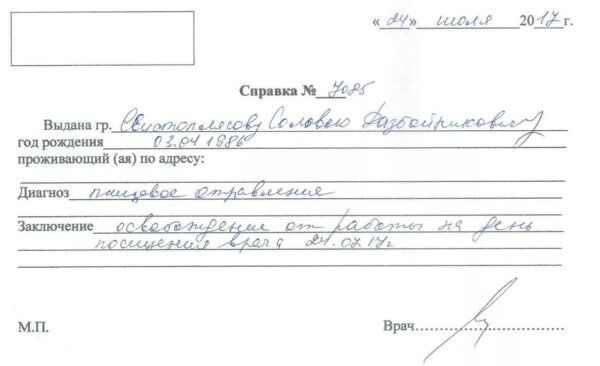 « 24 » июля 2017 г.
Справка № 7085
Выдана гр. Свистоплясову Соловью Разбойниковичу
год рождения 03.04 1986
проживающий (ая) по адресу:
Диагноз пищевое отравление
Заключение освобождение от работы на день
посещения врача 24.07.17г
М.П. Врач